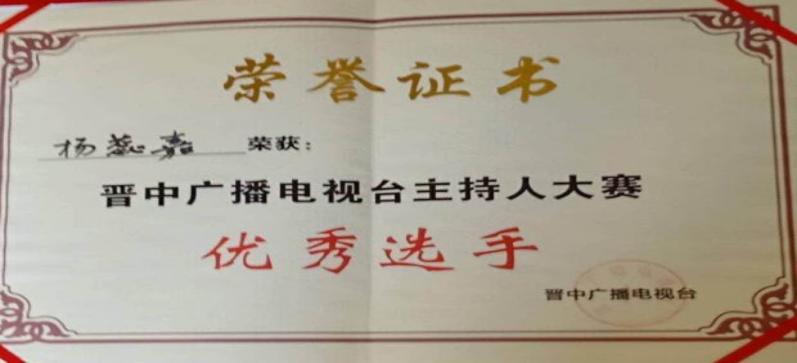 荣誉证书
杨蕊嘉 荣获：
晋中广播电视台主持人大赛
优秀选手
晋中广播电视台